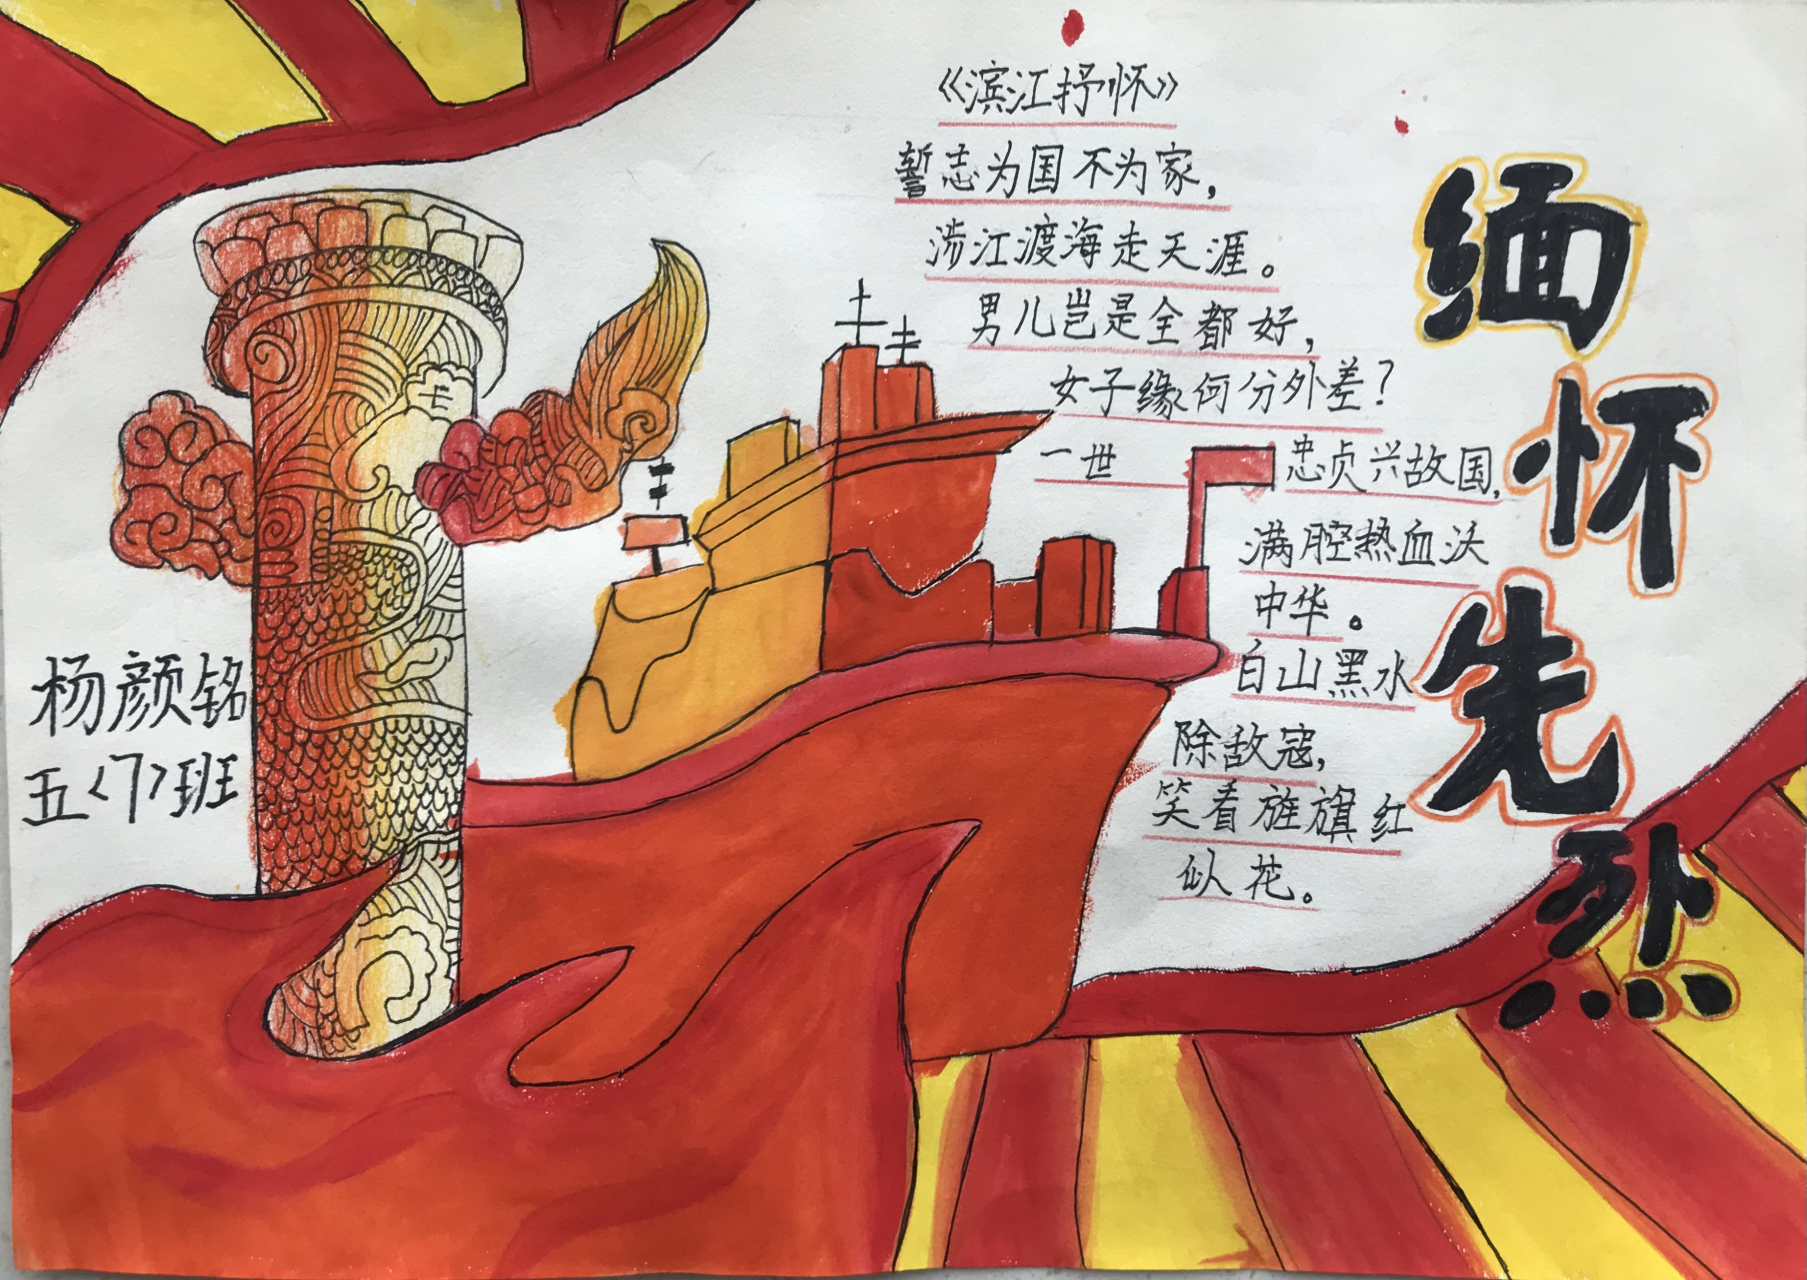 《滨江抒怀》
誓志为国不为家，
涉江渡海走天涯。
男儿岂是全都好，
女子缘何分外差？
一世忠贞兴故国，
满腔热血沃
中华。
白山黑水
除敌寇，
笑看旌旗红
似花。
缅怀先烈
杨颜铭
五〈7〉班